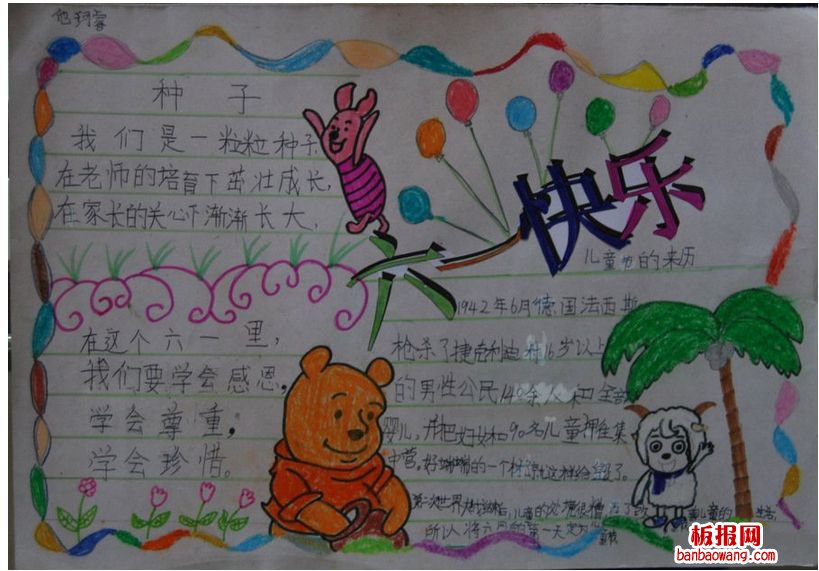 种 子
我们是一粒粒种子,
在老师的培育下茁壮成长,
在家长的关心下渐渐长大,
在这个六一里,
我们要学会感恩,
学会尊重,
学会珍惜。
六一快乐
儿童节的来历
1942年6月德国法西斯
枪杀了捷克利迪 村16岁以上
的男性公民140余人和全部
婴儿,并把妇女和90名儿童押 集
中营。好端端的一个村 就这样给 了。
第 次世界大战 后,儿童的 很糟 了 儿童的 生活,
所以将六月的第一天定为儿童节
板报网
banbaowang.com